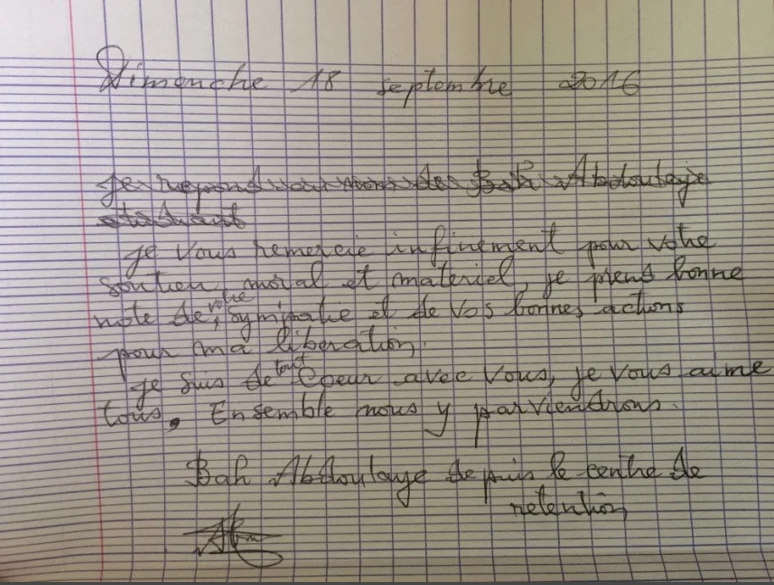 Dimenche 18 septembre 2016
Je repond au nom de Bah Abdoulaye
etudiant
Je vous remercie infinement pour votre
soutien, moral et materiel, je prens bonne
note de votre sympatie et de vos bonnes actions
pour ma libération.
Je suis de tout coeur avec vous, je vous aime
tous. Ensemble nous y parviendrons.
Bah Abdoulaye depuis le centre de
retention